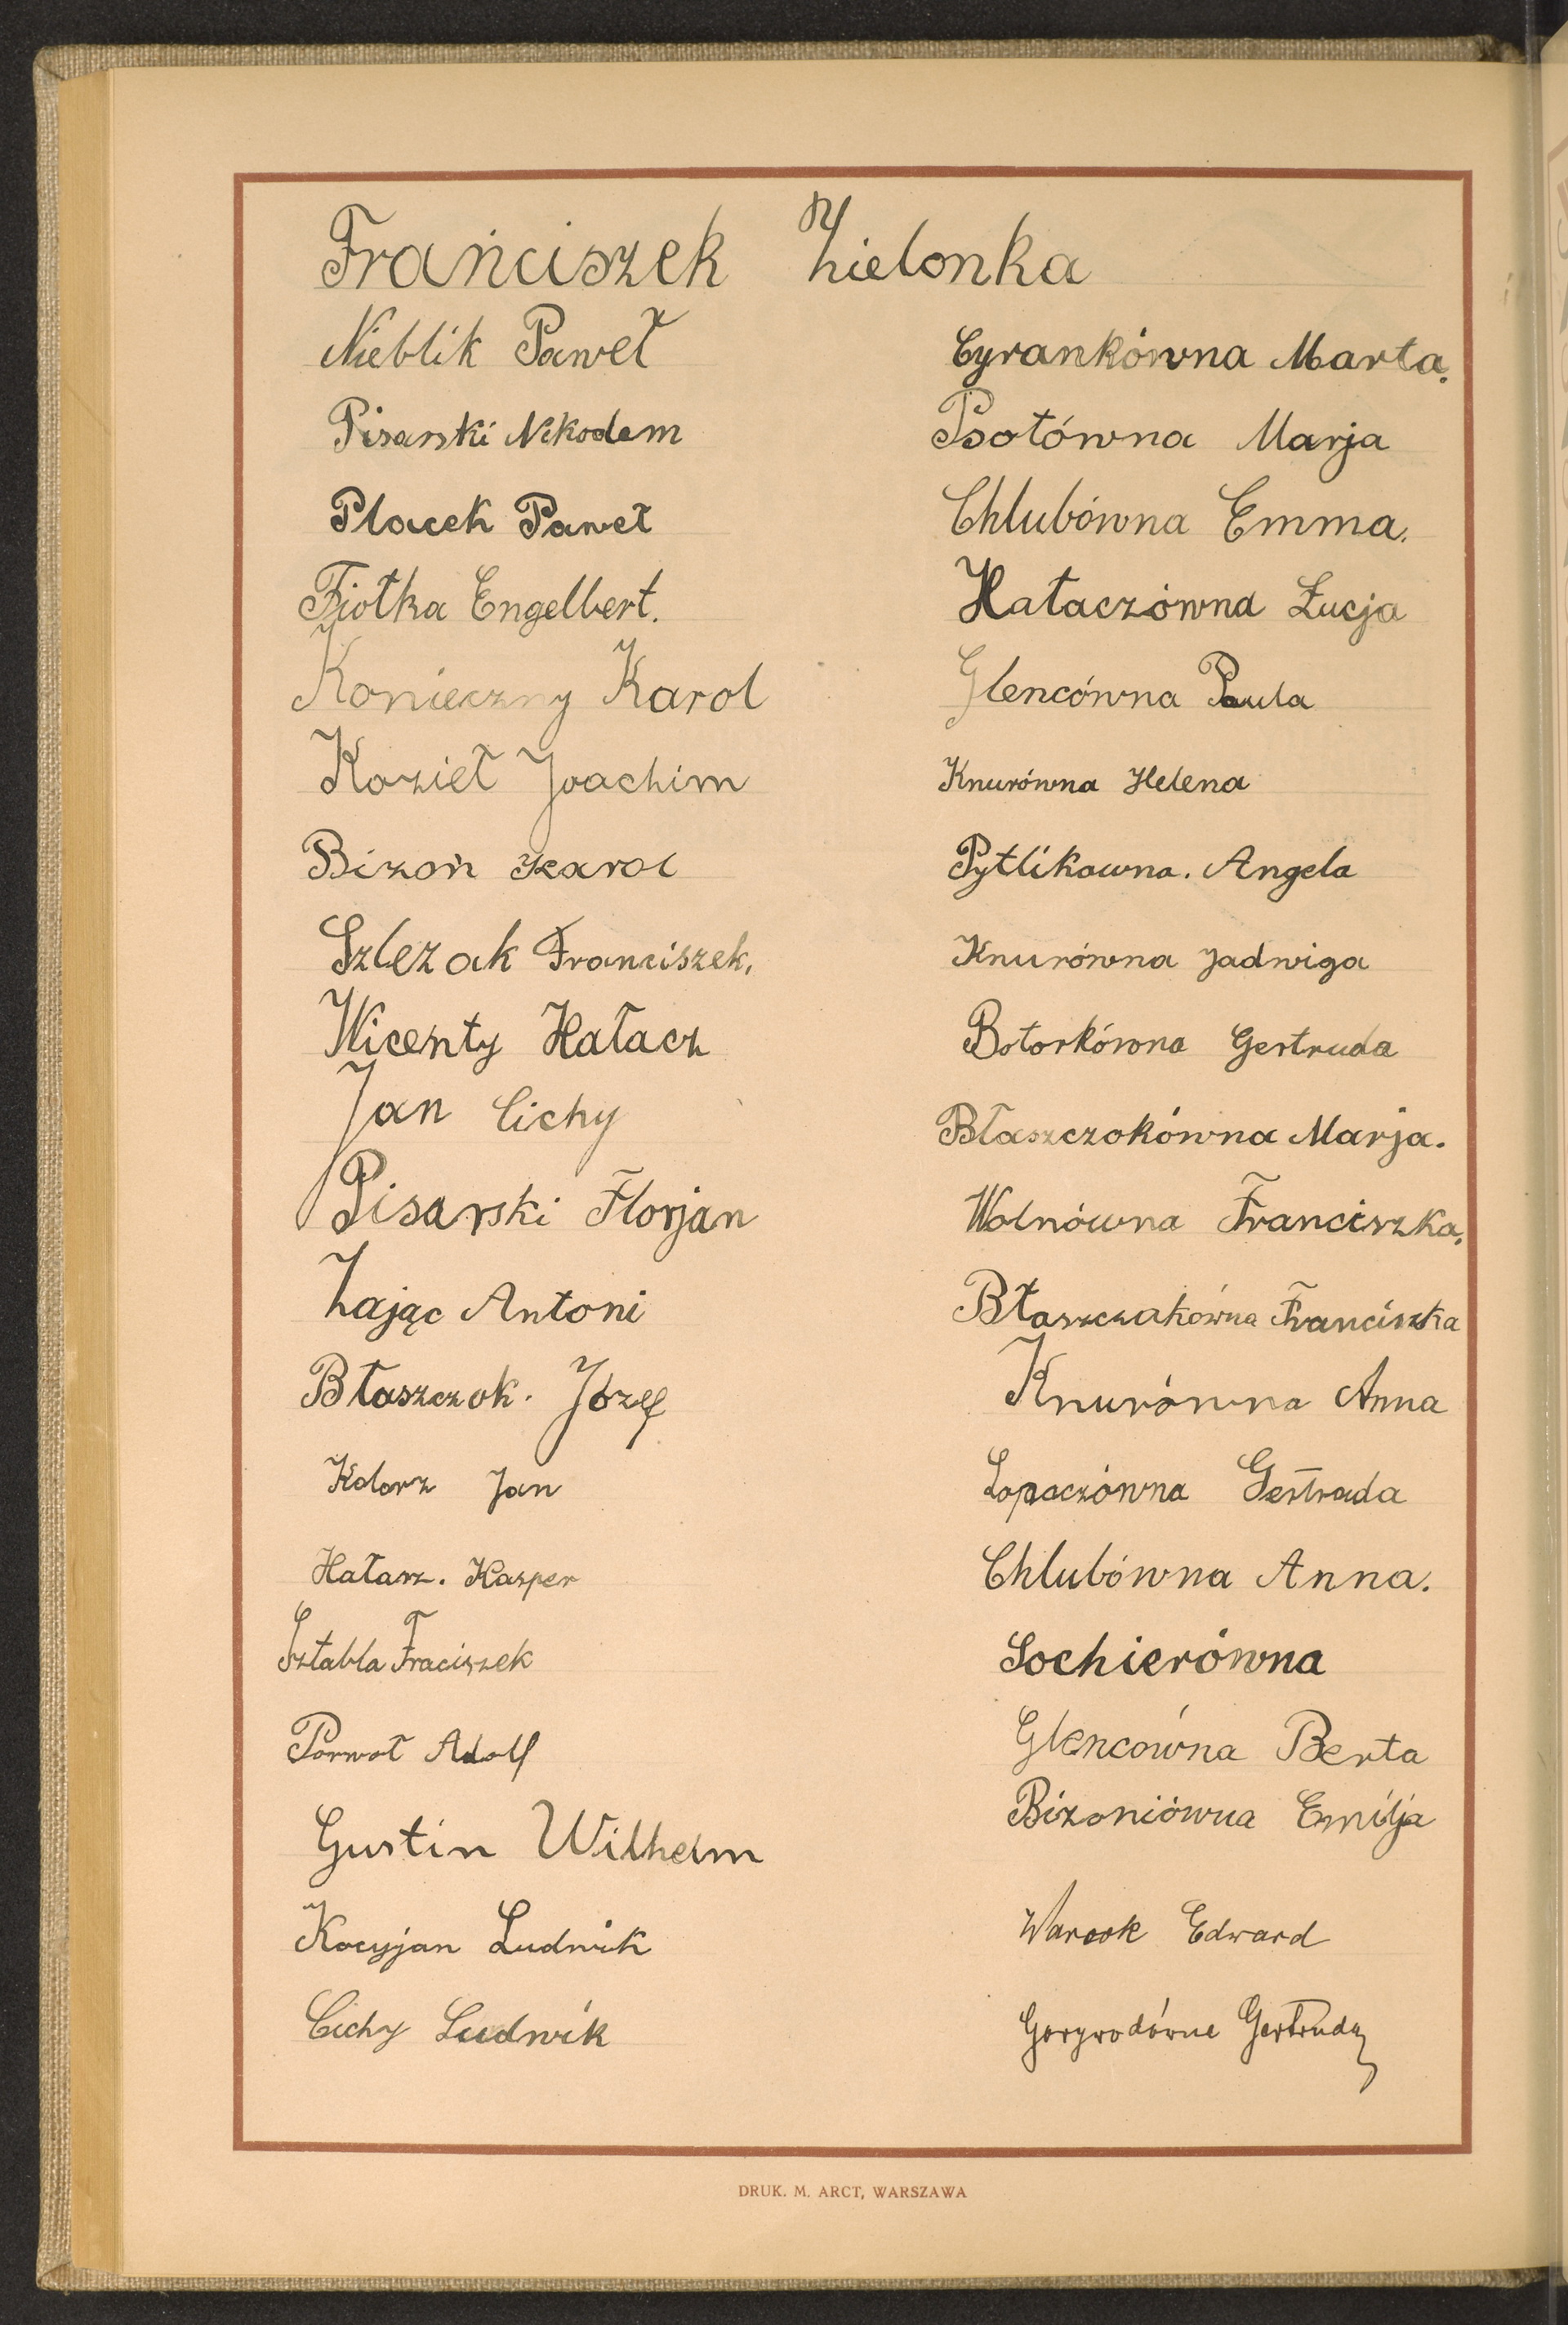 Franciszek Zielonka
Nieblik Paweł
Pisarski Nikodem
Placek Paweł
Fiołka Engelbert.
Konieczny Karol
Kozieł Joachim
Bizoń Karol
Szlezak Franciszek,
Wicenty Hałacz
Jan Cichy
Pisarski Florjan
Zając Antoni
Błaszczok. Józef
Kolorz Jan
Hałasz. Kasper
Sztabla Fraciszek
Porwoł Adolf
Gustin Wilhelm
Kocyjan Ludwik
Cichy Ludwik
Cyrankówna Marta.
Psotówna Marja
Chlubówna Emma.
Hałaczówna Łucja
Glencówna Paula
Knurówna Helena
Pytlikowna. Angela
Knurówna Jadwiga
Botorkówna Gertruda
Błaszczokówna Marja.
Wolnówna Franciszka,
Błaszczakówna Franciszka
Knurówna Anna
Łopaczówna Gertruda
Chlubówna Anna.
Sochierówna
Glencówna Berta
Bizoniówna Emilja
Edward
Gertruda
DRUK. M. ARCT, WARSZAWA